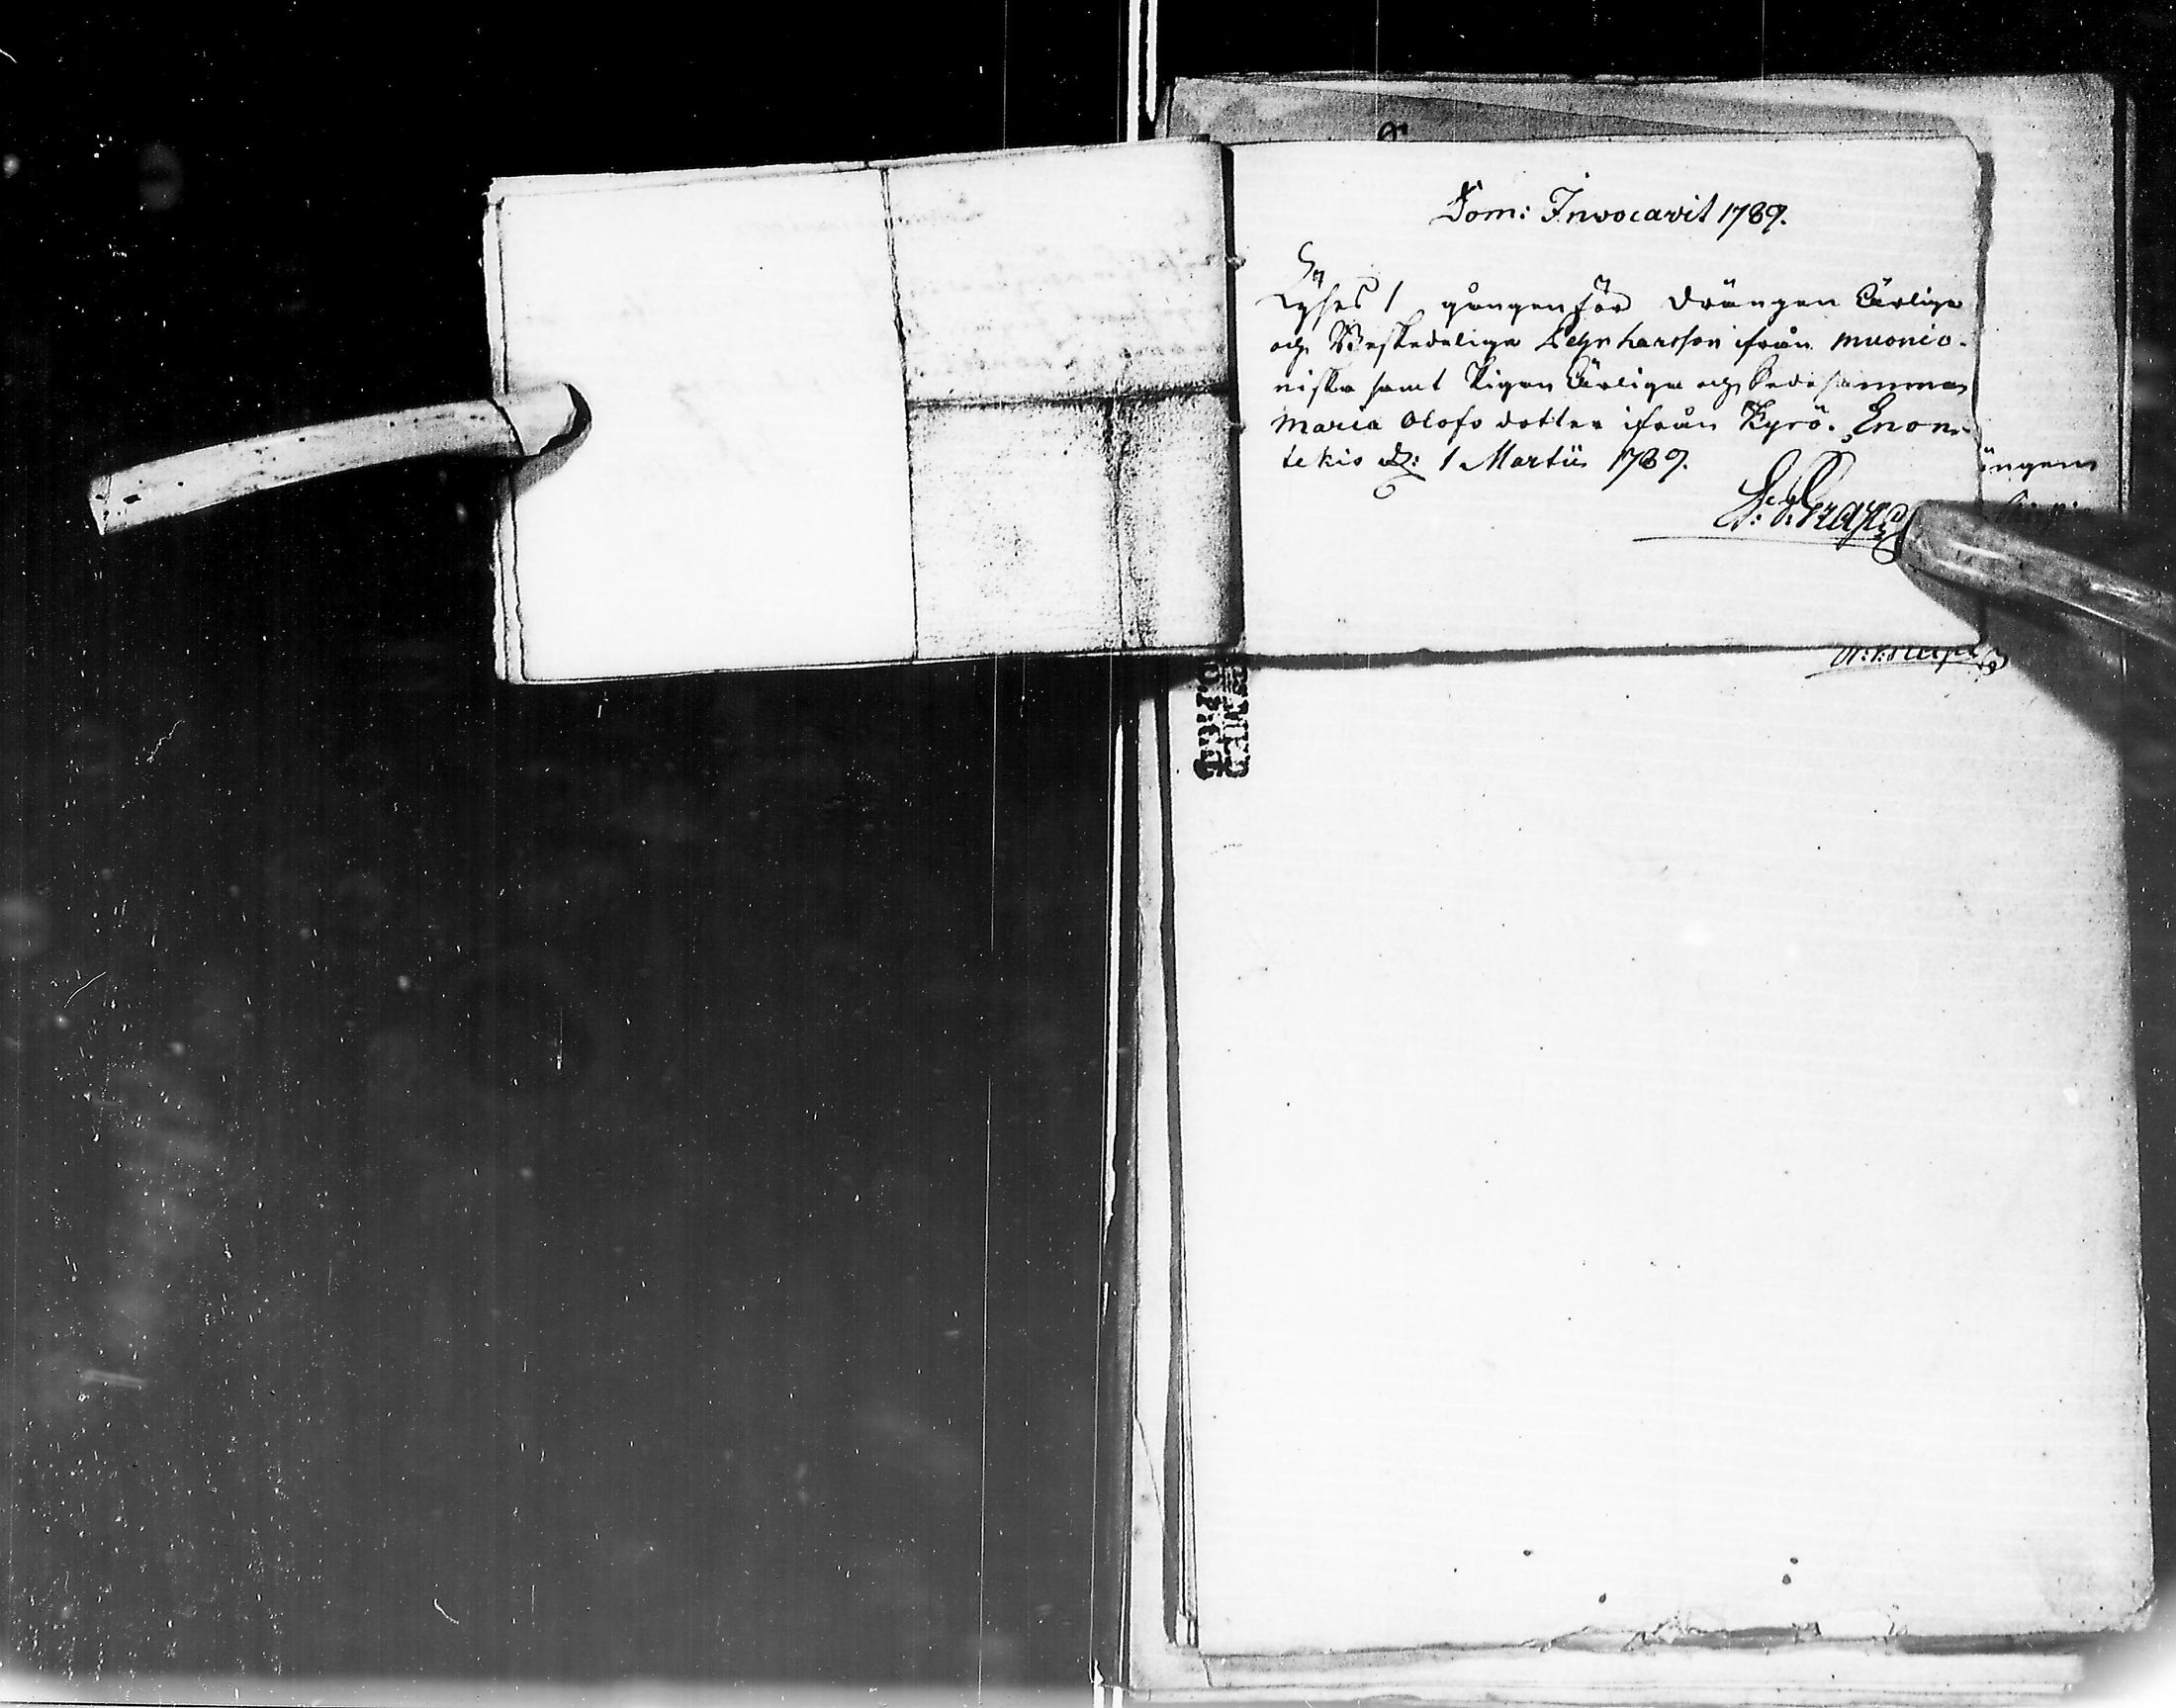 Dom: Invocavit 1789.
Lyses 1 gången för drängen Ärlige
och Beskedelige Lehnharsson ifrån muonio-
niska samt Pigan Ärliga och Bedesamma
Maria Olofs dotter ifrån Kyrö. Enon-
tekis d: 1 Martii 1789.
ängen